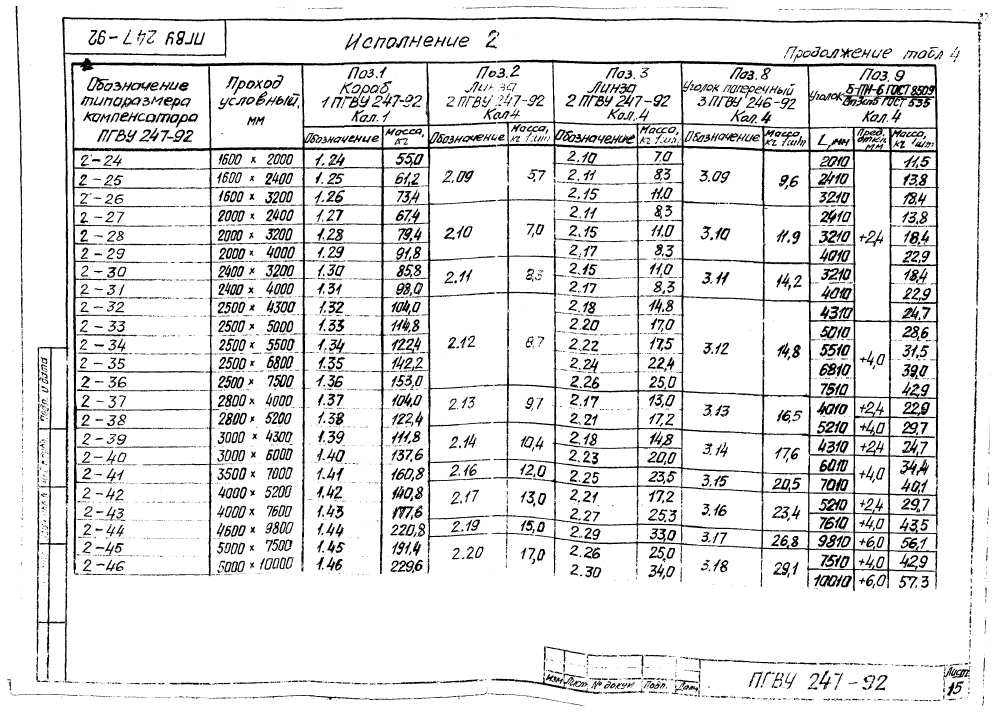 ПГВУ 247-92
Исполнение 2
Продолжение табл 4
Обозначение типоразмера компенсатора ПГВУ 247-92
Проход условный, мм
Поз.1 Короб 1 ПГВУ 247-92 Кол.1
Поз.2 Линза 2 ПГВУ 247-92 Кол 4
Поз. 3 Линза 2 ПГВУ 247-92 Кол. 4
Поз. 8 Уголок поперечный 3 ПГВУ 246-92 Кол. 4
Поз. 9 Уголок Б-ПН-Б ГОСТ 8509 ГОСТ 535 Кол. 4
Обозначение Масса, кг Обозначение Масса, кг 1шт. Обозначение Масса, кг 1шт. Обозначение Масса, кг 1шт L, мм Пред. откл. мм Масса, кг 1шт
2-24 1600 × 2000 1.24 55,0 2.09 5,7 2.10 7,0 3.09 9,6 2010 +2,4 11,5
2-25 1600 × 2400 1.25 61,2 2.11 8,3 2410 13,8
2-26 1600 × 3200 1.26 73,4 2.15 11,0 3210 18,4
2-27 2000 × 2400 1.27 67,4 2.10 7,0 2.11 8,3 3.10 11,9 2410 13,8
2-28 2000 × 3200 1.28 79,4 2.15 11,0 3210 18,4
2-29 2000 × 4000 1.29 91,8 2.17 8,3 4010 22,9
2-30 2400 × 3200 1.30 85,8 2.11 8,3 2.15 11,0 3.11 14,2 3210 18,4
2-31 2400 × 4000 1.31 98,0 2.17 8,3 4010 22,9
2-32 2500 × 4300 1.32 104,0 2.12 8,7 2.18 14,8 3.12 14,8 4310 24,7
2-33 2500 × 5000 1.33 114,8 2.20 17,0 5010 +4,0 28,6
2-34 2500 × 5500 1.34 122,4 2.22 17,5 5510 31,5
2-35 2500 × 6800 1.35 142,2 2.24 22,4 6810 39,0
2-36 2500 × 7500 1.36 153,0 2.26 25,0 7510 42,9
2-37 2800 × 4000 1.37 104,0 2.13 9,7 2.17 13,0 3.13 16,5 4010 +2,4 22,9
2-38 2800 × 5200 1.38 122,4 2.21 17,2 5210 +4,0 29,7
2-39 3000 × 4300 1.39 111,8 2.14 10,4 2.18 14,8 3.14 17,6 4310 +2,4 24,7
2-40 3000 × 6000 1.40 137,6 2.23 20,0 6010 +4,0 34,4
2-41 3500 × 7000 1.41 160,8 2.16 12,0 2.25 23,5 3.15 20,5 7010 40,1
2-42 4000 × 5200 1.42 140,8 2.17 13,0 2.21 17,2 3.16 23,4 5210 +2,4 29,7
2-43 4000 × 7600 1.43 177,6 2.27 25,3 7610 +4,0 43,5
2-44 4600 × 9800 1.44 220,8 2.19 15,0 2.29 33,0 3.17 26,8 9810 +6,0 56,1
2-45 5000 × 7500 1.45 191,4 2.20 17,0 2.26 25,0 3.18 29,1 7510 +4,0 42,9
2-46 5000 × 10000 1.46 229,6 2.30 34,0 10010 +6,0 57,3
Подп. и дата
Изм Лист № докум Подп. Дата
ПГВУ 247-92
Лист 15